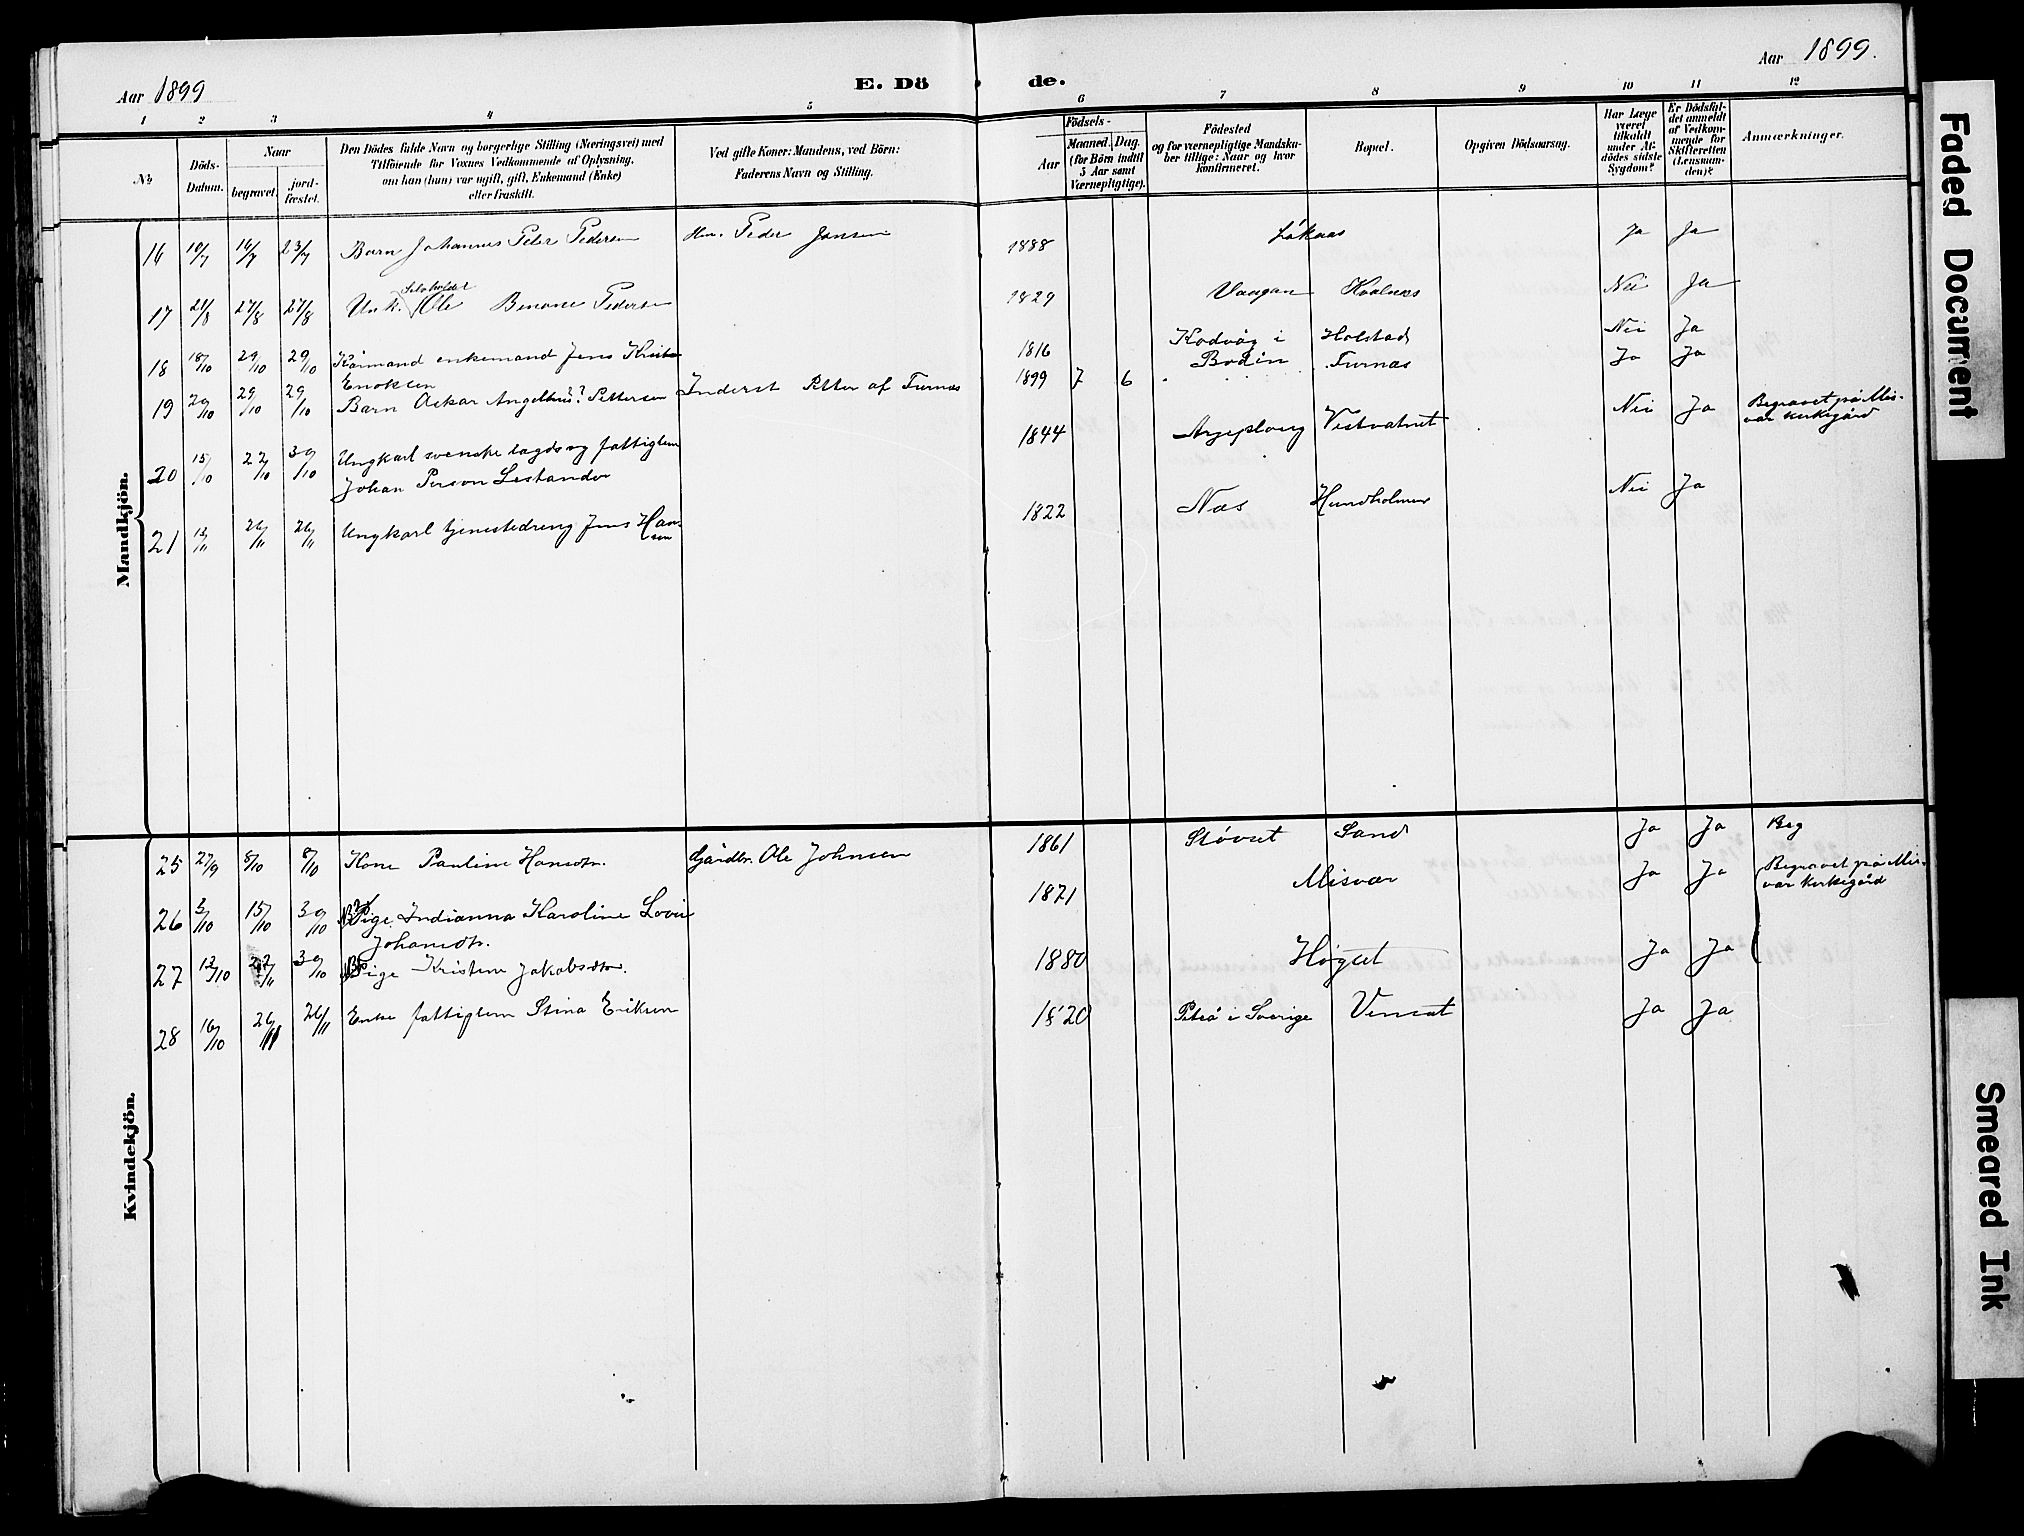 Aar 1899
E. Dö
de.
Aar 1899.
1 2 3 4 5 6 7 8 9 10 11 12
No
Döds-
Datum.
Naar
begravet.
jord-
fæstet.
Den Dödes fulde Navn og borgerlige Stilling (Næringsvei) med
Tilföiende for Voxnes Vedkommende af Oplysning,
om han (hun) var ugift, gift, Enkemand (Enke)
eller fraskilt.
Ved gifte Koner: Mandens, ved Börn:
Faderens Navn og Stilling.
Födsels-
Aar
Maaned. Dag.
(for Börn indtil
5 Aar samt
Værnepligtige).
Födested
og for værnepligtige Mandska-
ber tillige: Naar og hvor
konfirmeret.
Bopæl.
Opgiven Dödsaarsag.
Har Læge
været
tilkaldt
under Af-
dödes sidste
Sygdom?
Er Dödsfal-
det anmeldt
af Vedkom-
mende for
Skifteretten
(Lensman-
den)?
Anmærkninger.
Mandkjön.
16 10/7 16/7 23/7 Barn Johannes Peter Pedersen Peder Jensen 1888 Løkaas Ja Ja
Selvholder
17 21/8 27/8 27/8 Unk. Ole Benone Pedersen 1829 Vaagan Kvalnes Nei Ja
18 18/10 29/10 29/10 Kårmand enkemand Jens 1816 Kodvåg i Holstad Nei Ja
Enoksen Bodin
19 20/10 29/10 29/10 Barn Oskar Angelthius? Pettersen Inderst Petter af Turnæs 1899 7 6 Furnæs Ja Ja
20 15/10 22/10 30/10 Ungkarl svenske lagds og fattiglem 1844 Arjeploug Vestvatnet Nei Ja Begravet på Mis-
Johan Person Lestander vær kirkegård
21 12/11 26/11 26/11 Ungkarl tjenestedreng Jens Han- 1822 Næs Hundholmen Nei Ja
sen
Kvindekjön.
25 27/9 8/10 8/10 Kone Pauline Hansdtr. Gårdbr. Ole Johnsen 1861 Støvset Sand Ja Ja Beg
26 3/10 15/10 30/10 Pige Indianna Karoline Lovise 1871 Misvær Ja Ja Begravet på Mis-
Johansdtr. vær Kirkegård
27 12/10 22/11 30/10 Pige Kristine Jakobsdtr. 1880 Høgset Ja Ja
28 16/10 26/11 26/11 Enke fattiglem Stina Eriksen 1820 Piteå i Sverige Venset Ja Ja
Faded Document
Smeared Ink